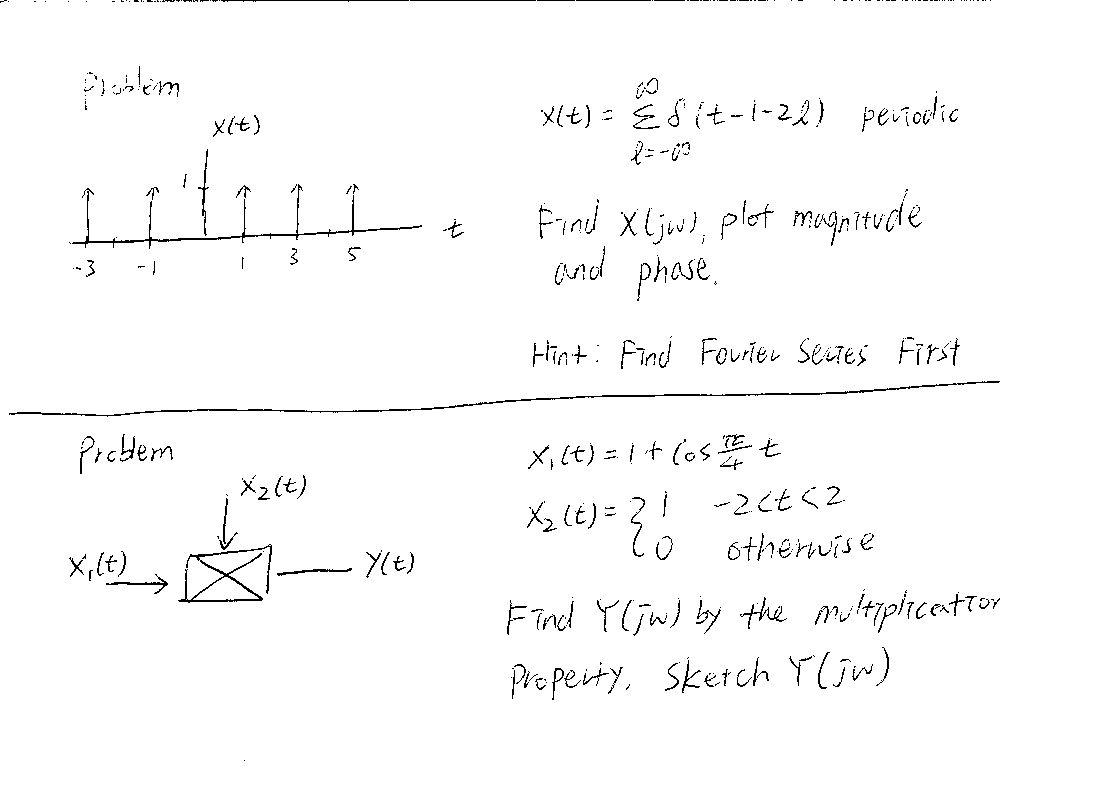 Problem
x(t)
1
-3 -1 1 3 5 t
x(t) = Σ δ(t-1-2l) periodic
∞
l=-∞
Find X(jw), plot magnitude
and phase.
Hint: Find Fourier Series First
Problem
X₂(t)
X₁(t)
Y(t)
X₁(t) = 1 + Cos π/4 t
X₂(t) = { 1 -2<t<2
0 otherwise
Find Y(jw) by the multiplication
Property. Sketch Y(jw)